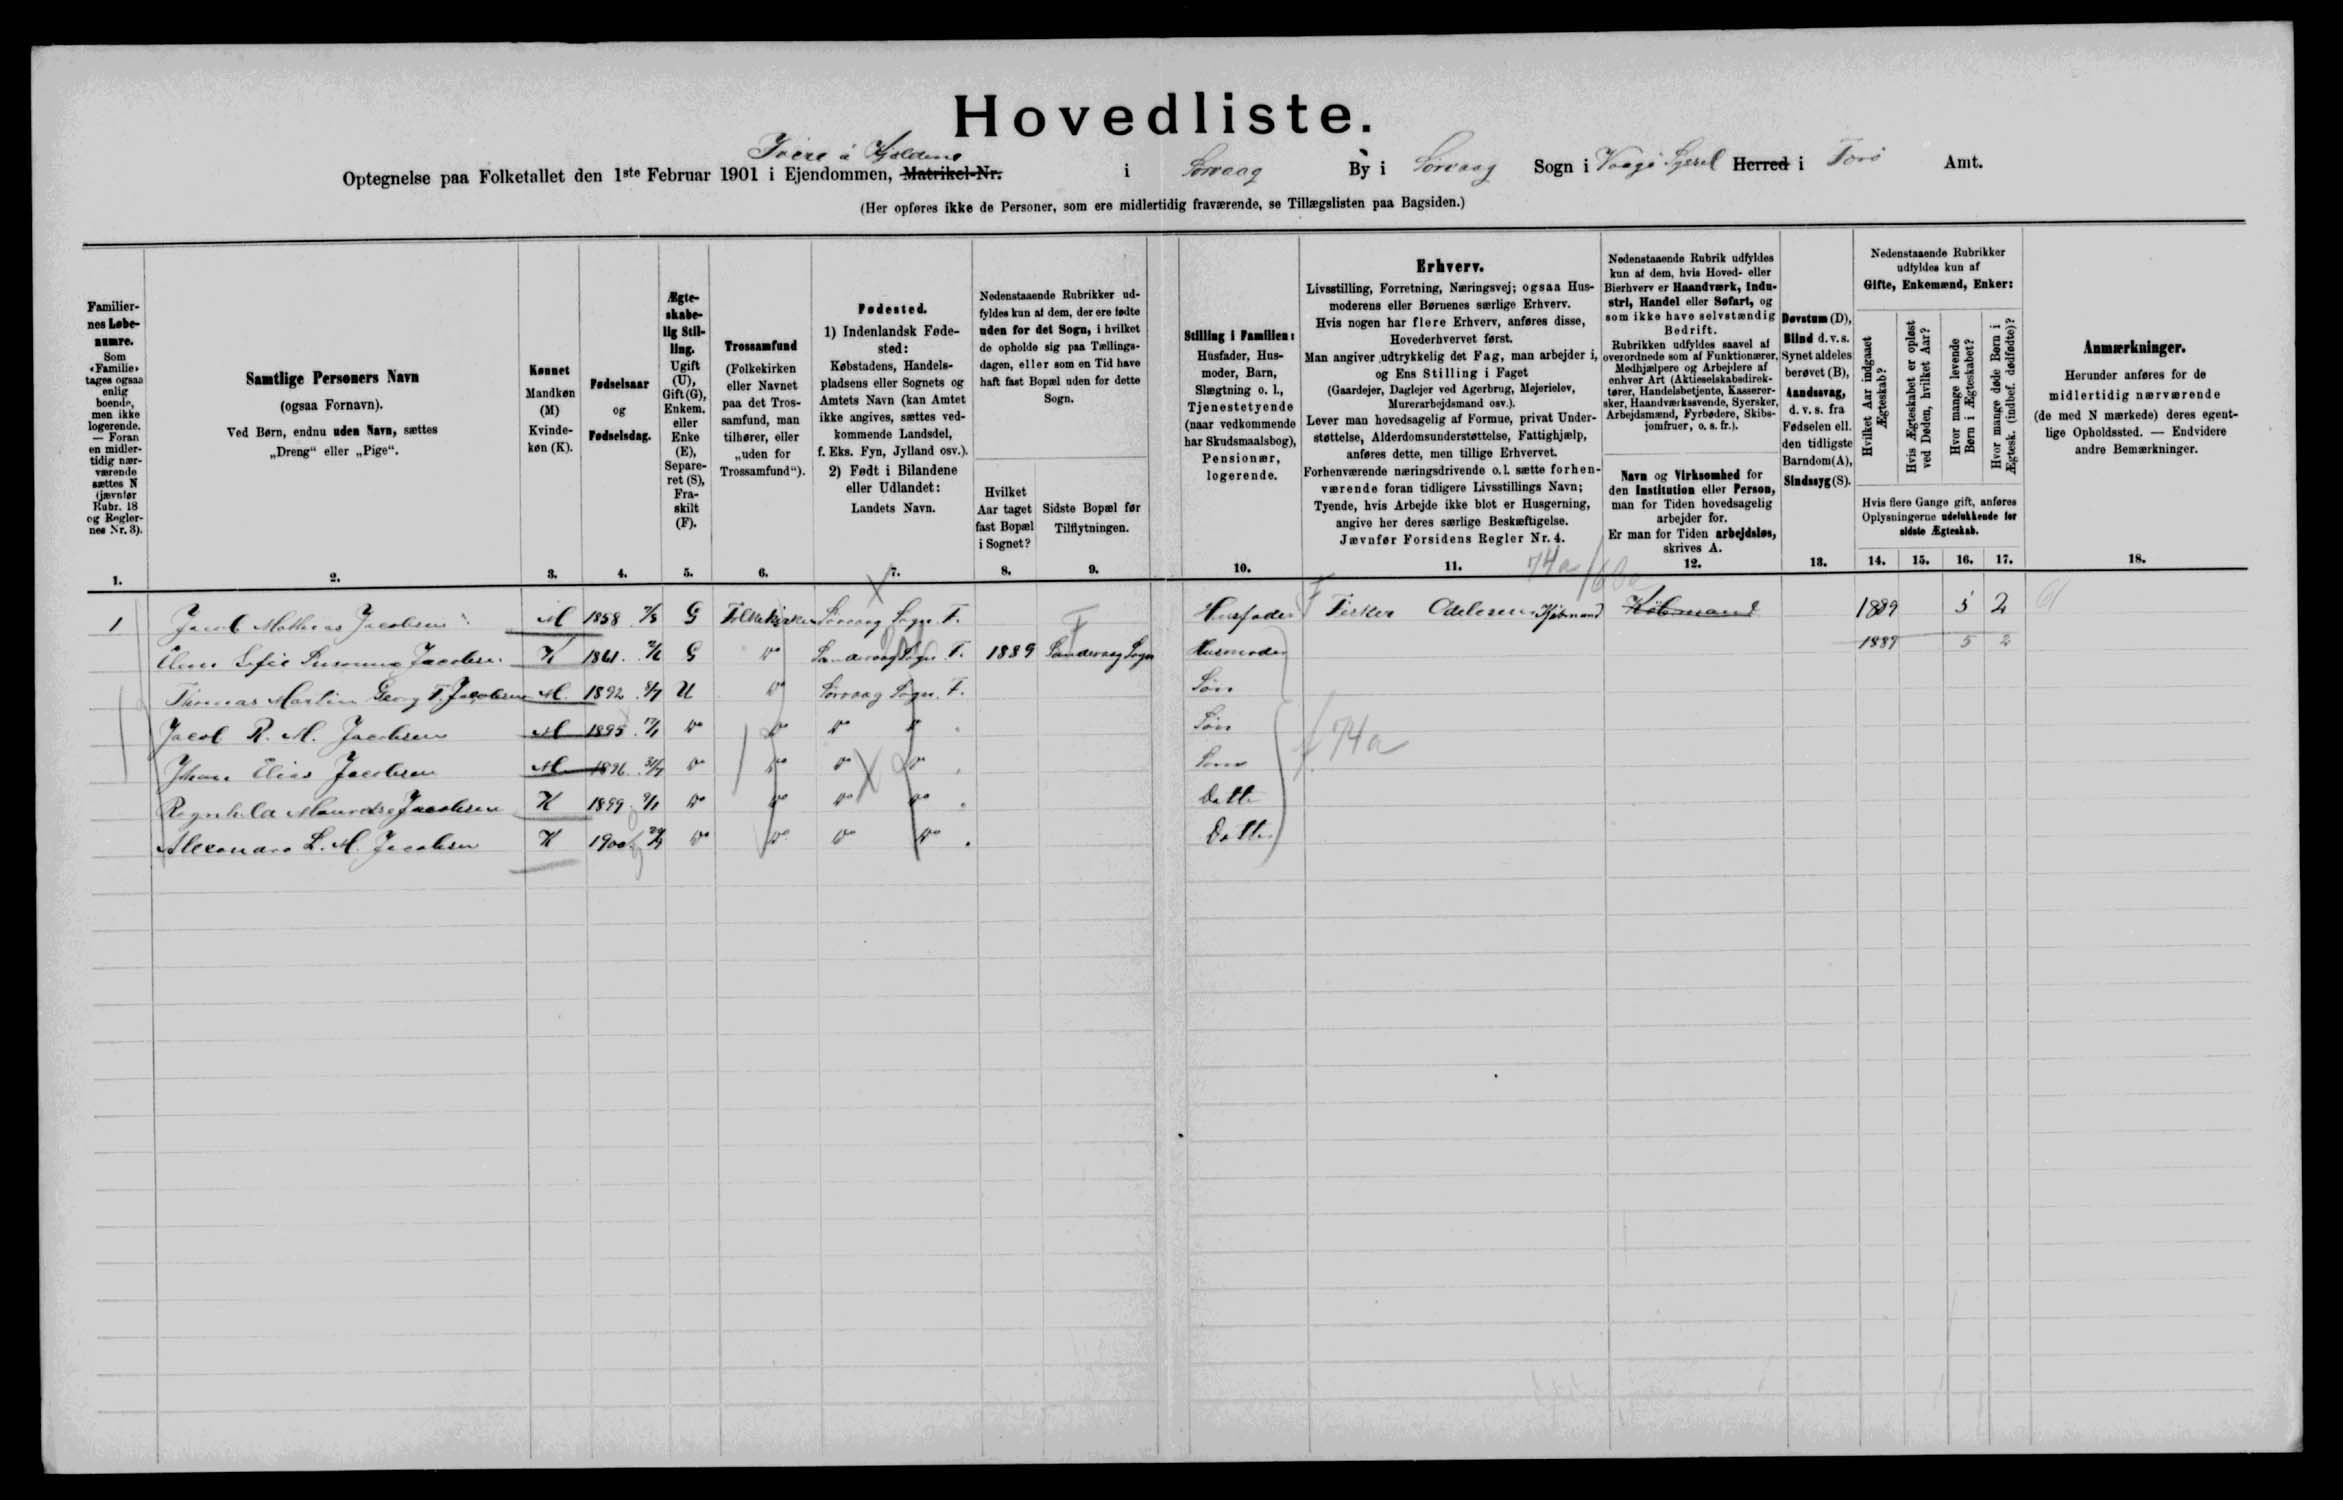 Hovedliste.
Optegnelse paa Folketallet den 1ste Februar 1901 i Ejendommen, Matrikel-Nr. i Sørvaag By i Sørvaag Sogn i Vaagø Syssel Herred i Færø Amt.
(Her opføres ikke de Personer, som ere midlertidig fraværende, se Tillægslisten paa Bagsiden.)
Familiernes Løbenumre.
Som «Familie» tages ogsaa enlig boende, men ikke logerende. — Foran en midlertidig nærværende sættes N (jævnfør Rubr. 18 og Reglernes Nr. 3).
Samtlige Personers Navn
(ogsaa Fornavn).
Ved Børn, endnu uden Navn, sættes
„Dreng“ eller „Pige“.
Kønnet
Mandkøn (M)
Kvindekøn (K).
Fødselsaar
og
Fødselsdag.
Ægteskabelig Stilling.
Ugift (U), Gift (G), Enkem. eller Enke (E), Separeret (S), Fraskilt (F).
Trossamfund
(Folkekirken eller Navnet paa det Trossamfund, man tilhører, eller „uden for Trossamfund“).
Fødested.
1) Indenlandsk Fødested:
Købstadens, Handelspladsens eller Sognets og Amtets Navn (kan Amtet ikke angives, sættes vedkommende Landsdel, f. Eks. Fyn, Jylland osv.).
2) Født i Bilandene eller Udlandet:
Landets Navn.
Nedenstaaende Rubrikker udfyldes kun af dem, der ere fødte uden for det Sogn, i hvilket de opholde sig paa Tællingsdagen, eller som en Tid have haft fast Bopæl uden for dette Sogn.
Hvilket Aar taget fast Bopæl i Sognet?
Sidste Bopæl før Tilflytningen.
Stilling i Familien:
Husfader, Husmoder, Barn, Slægtning o. l., Tjenestetyende (naar vedkommende har Skudsmaalsbog), Pensionær, logerende.
Erhverv.
Livsstilling, Forretning, Næringsvej; ogsaa Husmoderens eller Børnenes særlige Erhverv.
Hvis nogen har flere Erhverv, anføres disse, Hovederhvervet først.
Man angiver udtrykkelig det Fag, man arbejder i, og Ens Stilling i Faget
(Gaardejer, Daglejer ved Agerbrug, Mejerielev, Murerarbejdsmand osv.).
Lever man hovedsagelig af Formue, privat Understøttelse, Alderdomsunderstøttelse, Fattighjælp, anføres dette, men tillige Erhvervet.
Forhenværende næringsdrivende o. l. sætte forhenværende foran tidligere Livsstillings Navn;
Tyende, hvis Arbejde ikke blot er Husgerning, angive her deres særlige Beskæftigelse.
Jævnfør Forsidens Regler Nr. 4.
Nedenstaaende Rubrik udfyldes kun af dem, hvis Hoved- eller Bierhverv er Haandværk, Industri, Handel eller Søfart, og som ikke have selvstændig Bedrift.
Rubrikken udfyldes saavel af overordnede som af Funktionærer, Medhjælpere og Arbejdere af enhver Art (Aktieselskabsdirektører, Handelsbetjente, Kasserersker, Haandværkssvende, Syersker, Arbejdsmænd, Fyrbødere, Skibsjomfruer, o. s. fr.).
Navn og Virksomhed for den Institution eller Person, man for Tiden hovedsagelig arbejder for.
Er man for Tiden arbejdsløs, skrives A.
Døvstum (D), Blind d. v. s. Synet aldeles berøvet (B), Aandssvag, d. v. s. fra Fødselen ell. den tidligste Barndom (A), Sindssyg (S).
Nedenstaaende Rubrikker udfyldes kun af
Gifte, Enkemænd, Enker:
Hvilket Aar indgaaet Ægteskab?
Hvis Ægteskabet er opløst ved Døden, hvilket Aar?
Hvor mange levende Børn i Ægteskabet?
Hvor mange døde Børn i Ægtesk. (indbef. dødfødte)?
Hvis flere Gange gift, anføres Oplysningerne udelukkende for sidste Ægteskab.
Anmærkninger.
Herunder anføres for de midlertidig nærværende (de med N mærkede) deres egentlige Opholdssted. — Endvidere andre Bemærkninger.
1. 2. 3. 4. 5. 6. 7. 8. 9. 10. 11. 12. 13. 14. 15. 16. 17. 18.
74a
1 Jacob Mathias Jacobsen M 1858 G Folkekirken Sørvaag Sogn F. Husfader Fisker Kjøbmand Købmand 1889 5 2
Elen Sofie Susanna Jacobsen K 1861 G do Sandevaag Sogn F. 1889 Sandevaag Sogn Husmoder 1889 5 2
Thomas Martin Georg F. Jacobsen M 1892 U do Sørvaag Sogn F. Søn
Jacob R. M. Jacobsen M 1895 do do do do Søn
Elias Jacobsen M 1896 do do do do Søn
74a
Jacobsen K 1899 do do do do Datter
L. M. Jacobsen K 1900 do do do do Datter